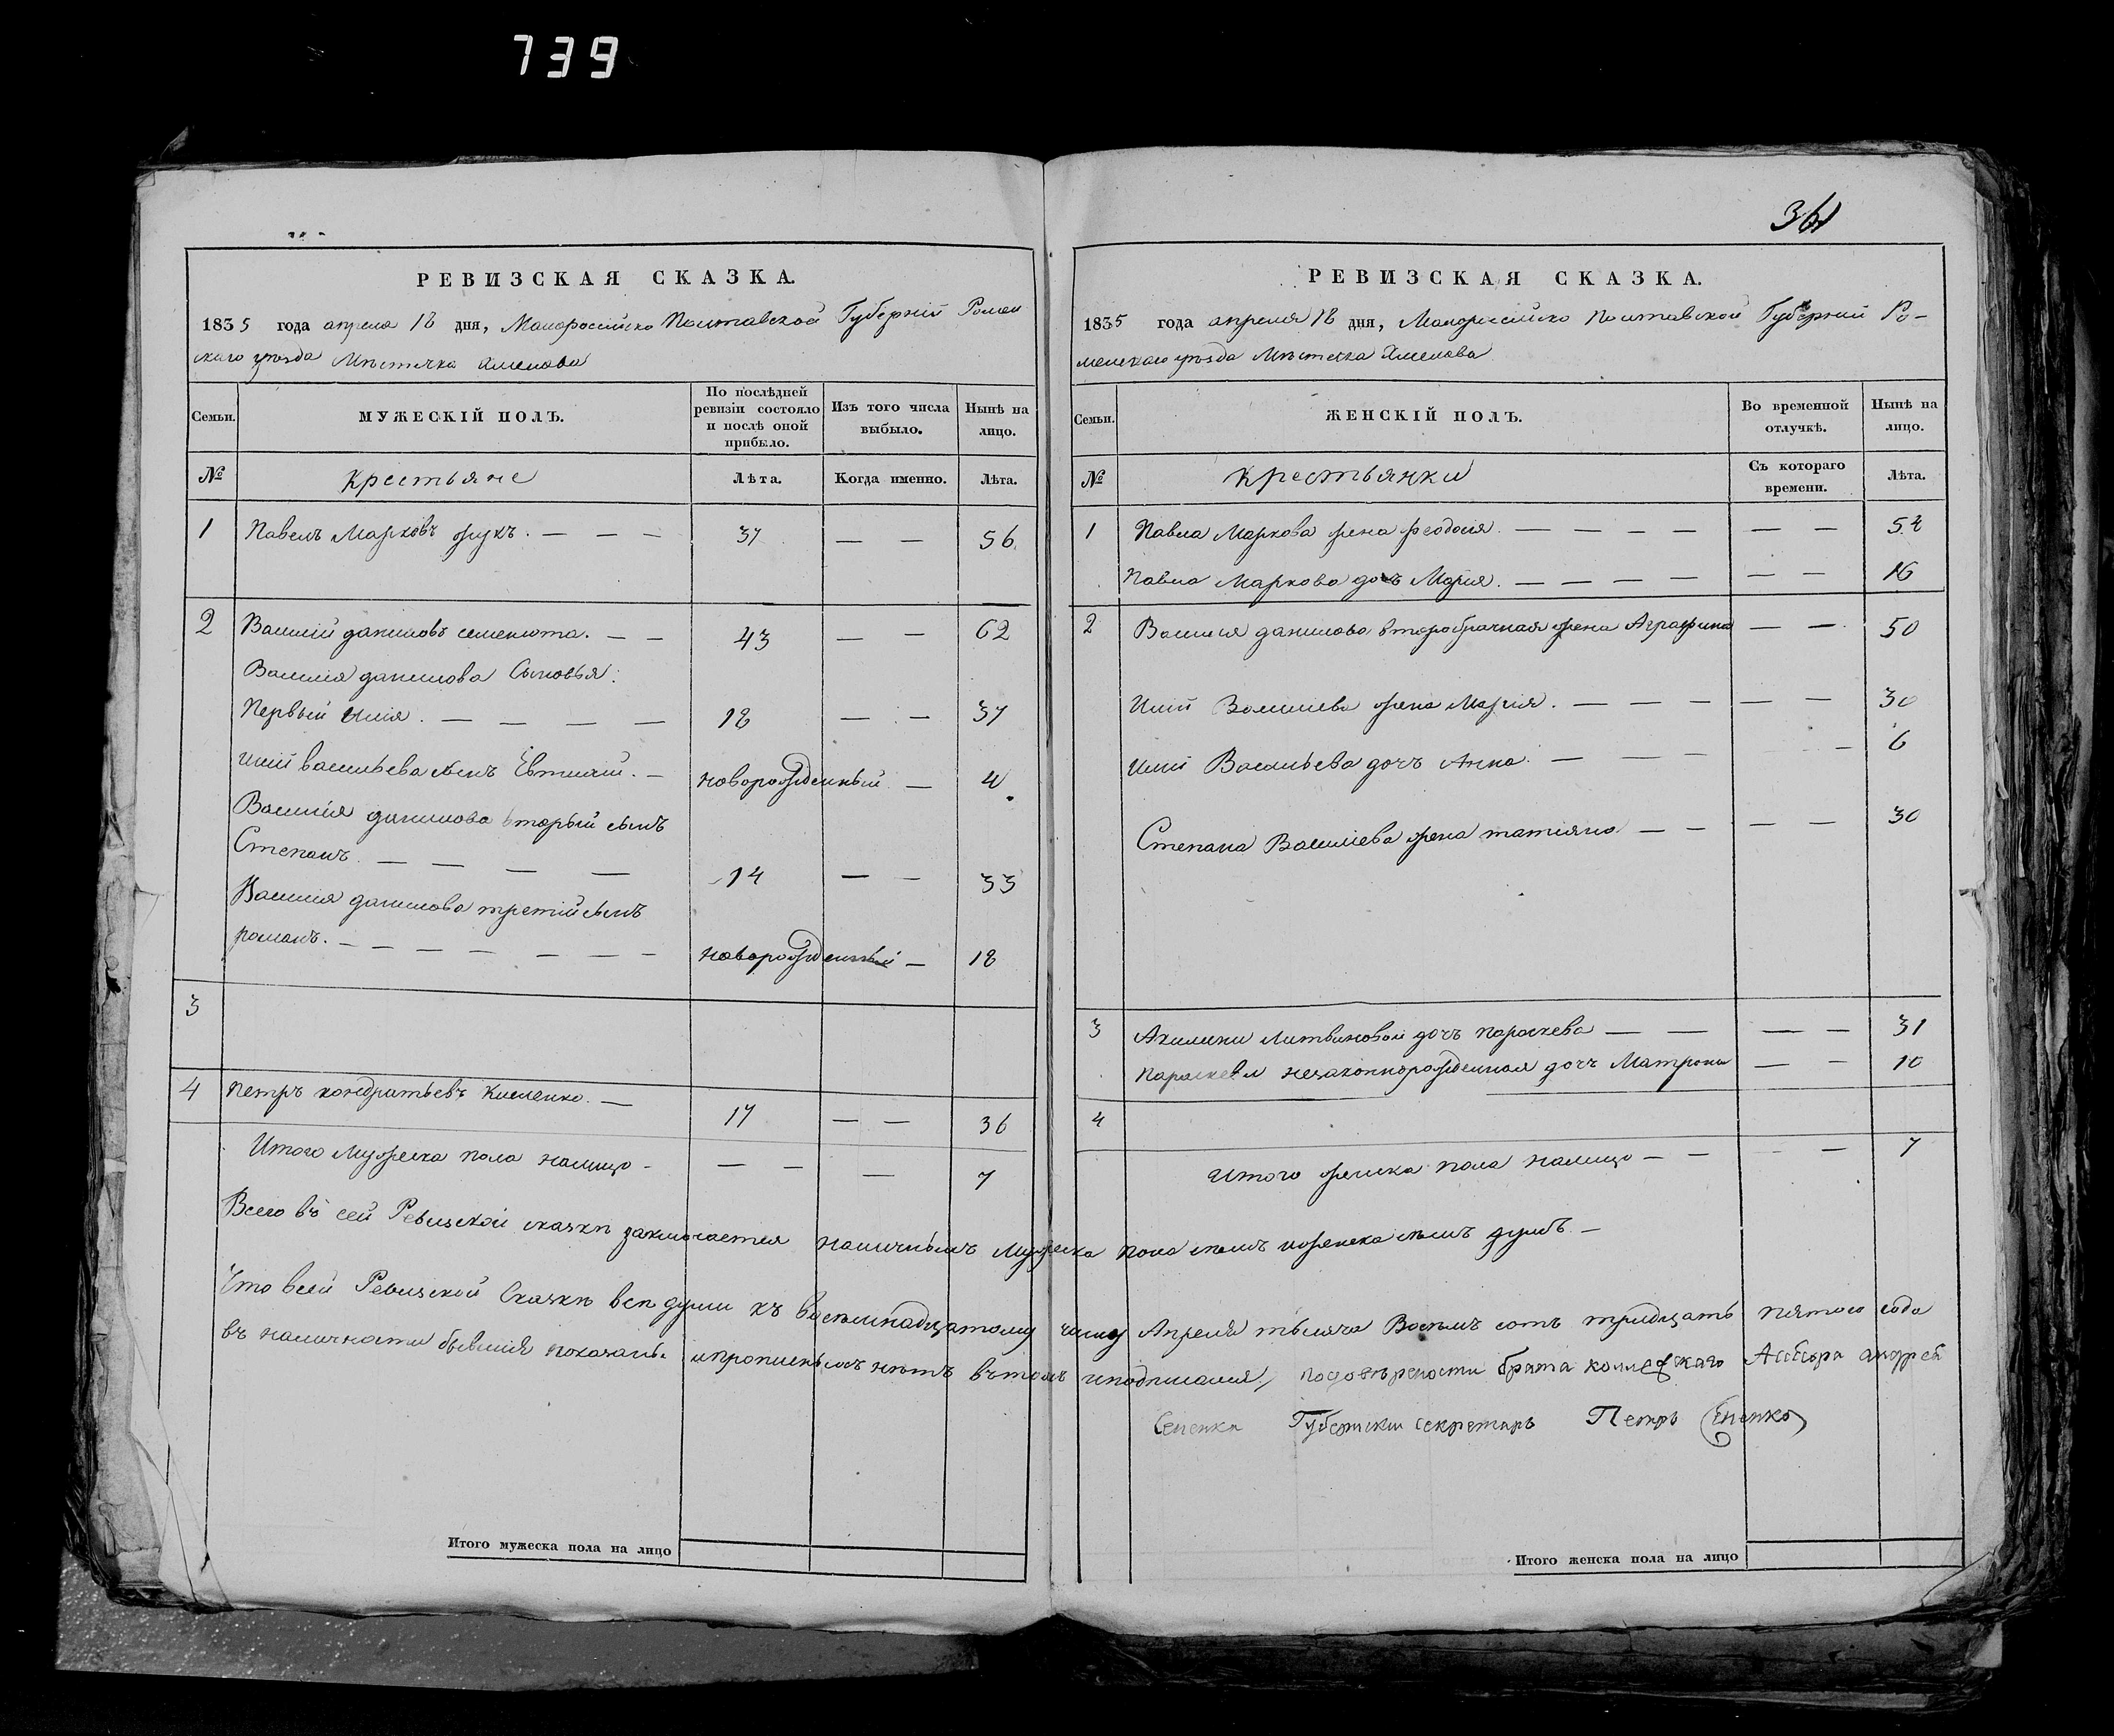 739
361
РЕВИЗСКАЯ СКАЗКА.
1835 года апреля 18 дня, Малоросийско Полтавской Губерніи Ромен
скаго уѣзда Мѣстечка Хмелова
Семьи.
МУЖЕСКІЙ ПОЛЪ.
По послѣдней ревизіи состояло и послѣ оной прибыло.
Изъ того числа выбыло.
Нынѣ на лицо.
№
Крестьяне
Лѣта.
Когда именно.
Лѣта.
1 Павелъ Марковъ жукъ. — — — 37 — — 56
2 Василій даниловъ семенюта. — — 43 — — 62
Василія данилова Сыновья:
Первый Илія. — — — — 18 — — 37
Иліи васильева сынъ Евтихій. — новорожденный — 4
Василія данилова вторый сынъ
Степанъ. — — — — 14 — — 33
Василія данилова третій сынъ
романъ. — — — — — — новорожденный — 18
3
4 Петръ кондратьевъ Кисленко. — 17 — — 36
Итого Мужеска пола налицо — — — — 7
РЕВИЗСКАЯ СКАЗКА.
1835 года апреля 18 дня, Малоросийско Полтавской Губерніи Ро-
менскаго уѣзда Мѣстечка Хмелова
Семьи.
ЖЕНСКІЙ ПОЛЪ.
Во временной отлучкѣ.
Нынѣ на лицо.
№
Крестьянки
Съ котораго времени.
Лѣта.
1 Павла Маркова жена феодосия. — — — — — — 54
Павла Маркова дочь Мария. — — — — — — 16
2 Василія данилова второбрачная жена Аграфина — — 50
Иліи Василиева жена Мария. — — — — — — 30
Иліи Васильева дочь Анна. — — — — 6
Степана Василіева жена татіяна — — — — 30
3 Акилини Литвиновой дочъ параскева — — — — 31
Параскевы незаконнорожденная дочъ Матрона — — 10
4
Итого женска пола налицо — — — — 7
Всего въ сей Ревизской сказкѣ заключается наличныхъ Мужеска пола семъ иженска семъ душъ. —
Что всей Ревизской Сказкѣ всѣ души къ восемнадцатому числу Апреля тысяча Восемъ сотъ тридцать пятого года
въ наличности бывшия показаны. ипрописныхъ нѣтъ втомъ иподписался, подовѣрености брата коллежскаго Асесора андрея
Сененка Губернски секретарь Петръ Сененко
Итого мужеска пола на лицо
Итого женска пола на лицо